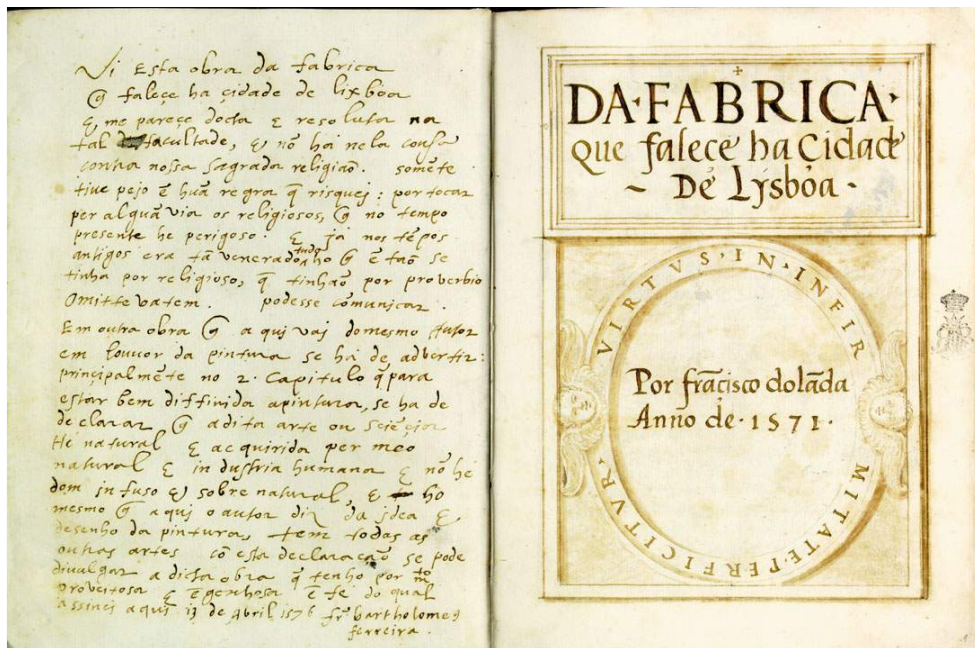 Vi Esta obra da fabrica
q̃ faleçe ha çidade de lixboa
E, me pareçe docta E resoluta na
tal facultade, E nõ ha nela cousa
contra nossa sagrada religiaõ. somẽte
tiue pejo ẽ huã regra q̃ risquej: por tocar
per alguã via os religiosos, q̃ no tempo
presente he perigoso. E já nos tẽpos
antigos era tã venerado tudo ho q̃ ẽtaõ se
tinha por religioso, q̃ tinhaõ por proverbio
Omitte vatem. podesse cõmunicar.
Em outra obra q̃ aqui vai do mesmo Autor
em louuor da pintura se há de advertir:
principalmẽte no 2. Capitulo q̃ para
estar bem diffinida a pintura, se ha de
declarar q̃ a dita arte ou sciẽçia
He natural E acquirida per meo
natural E industria humana E nõ he
dom infuso E sobrenatural, E ho
mesmo q̃ aqui o autor diz da idea E
desenho da pintura, tem todas as
outras artes cõ esta declaraçaõ se pode
divulgar a dicta obra q̃ tenho por
proveitosa E ẽgenhosa ẽ fe do qual
assinei aqui 13 de Abril 1576 fr bartholomeu
ferreira.
DA·FABRICA·
que falece ha Cidade
~ De Lysboa ·
VIRTVS·IN·INFIR
MITATE·PERFICITVR·
Por frãcisco dolãda
Anno de·1571·